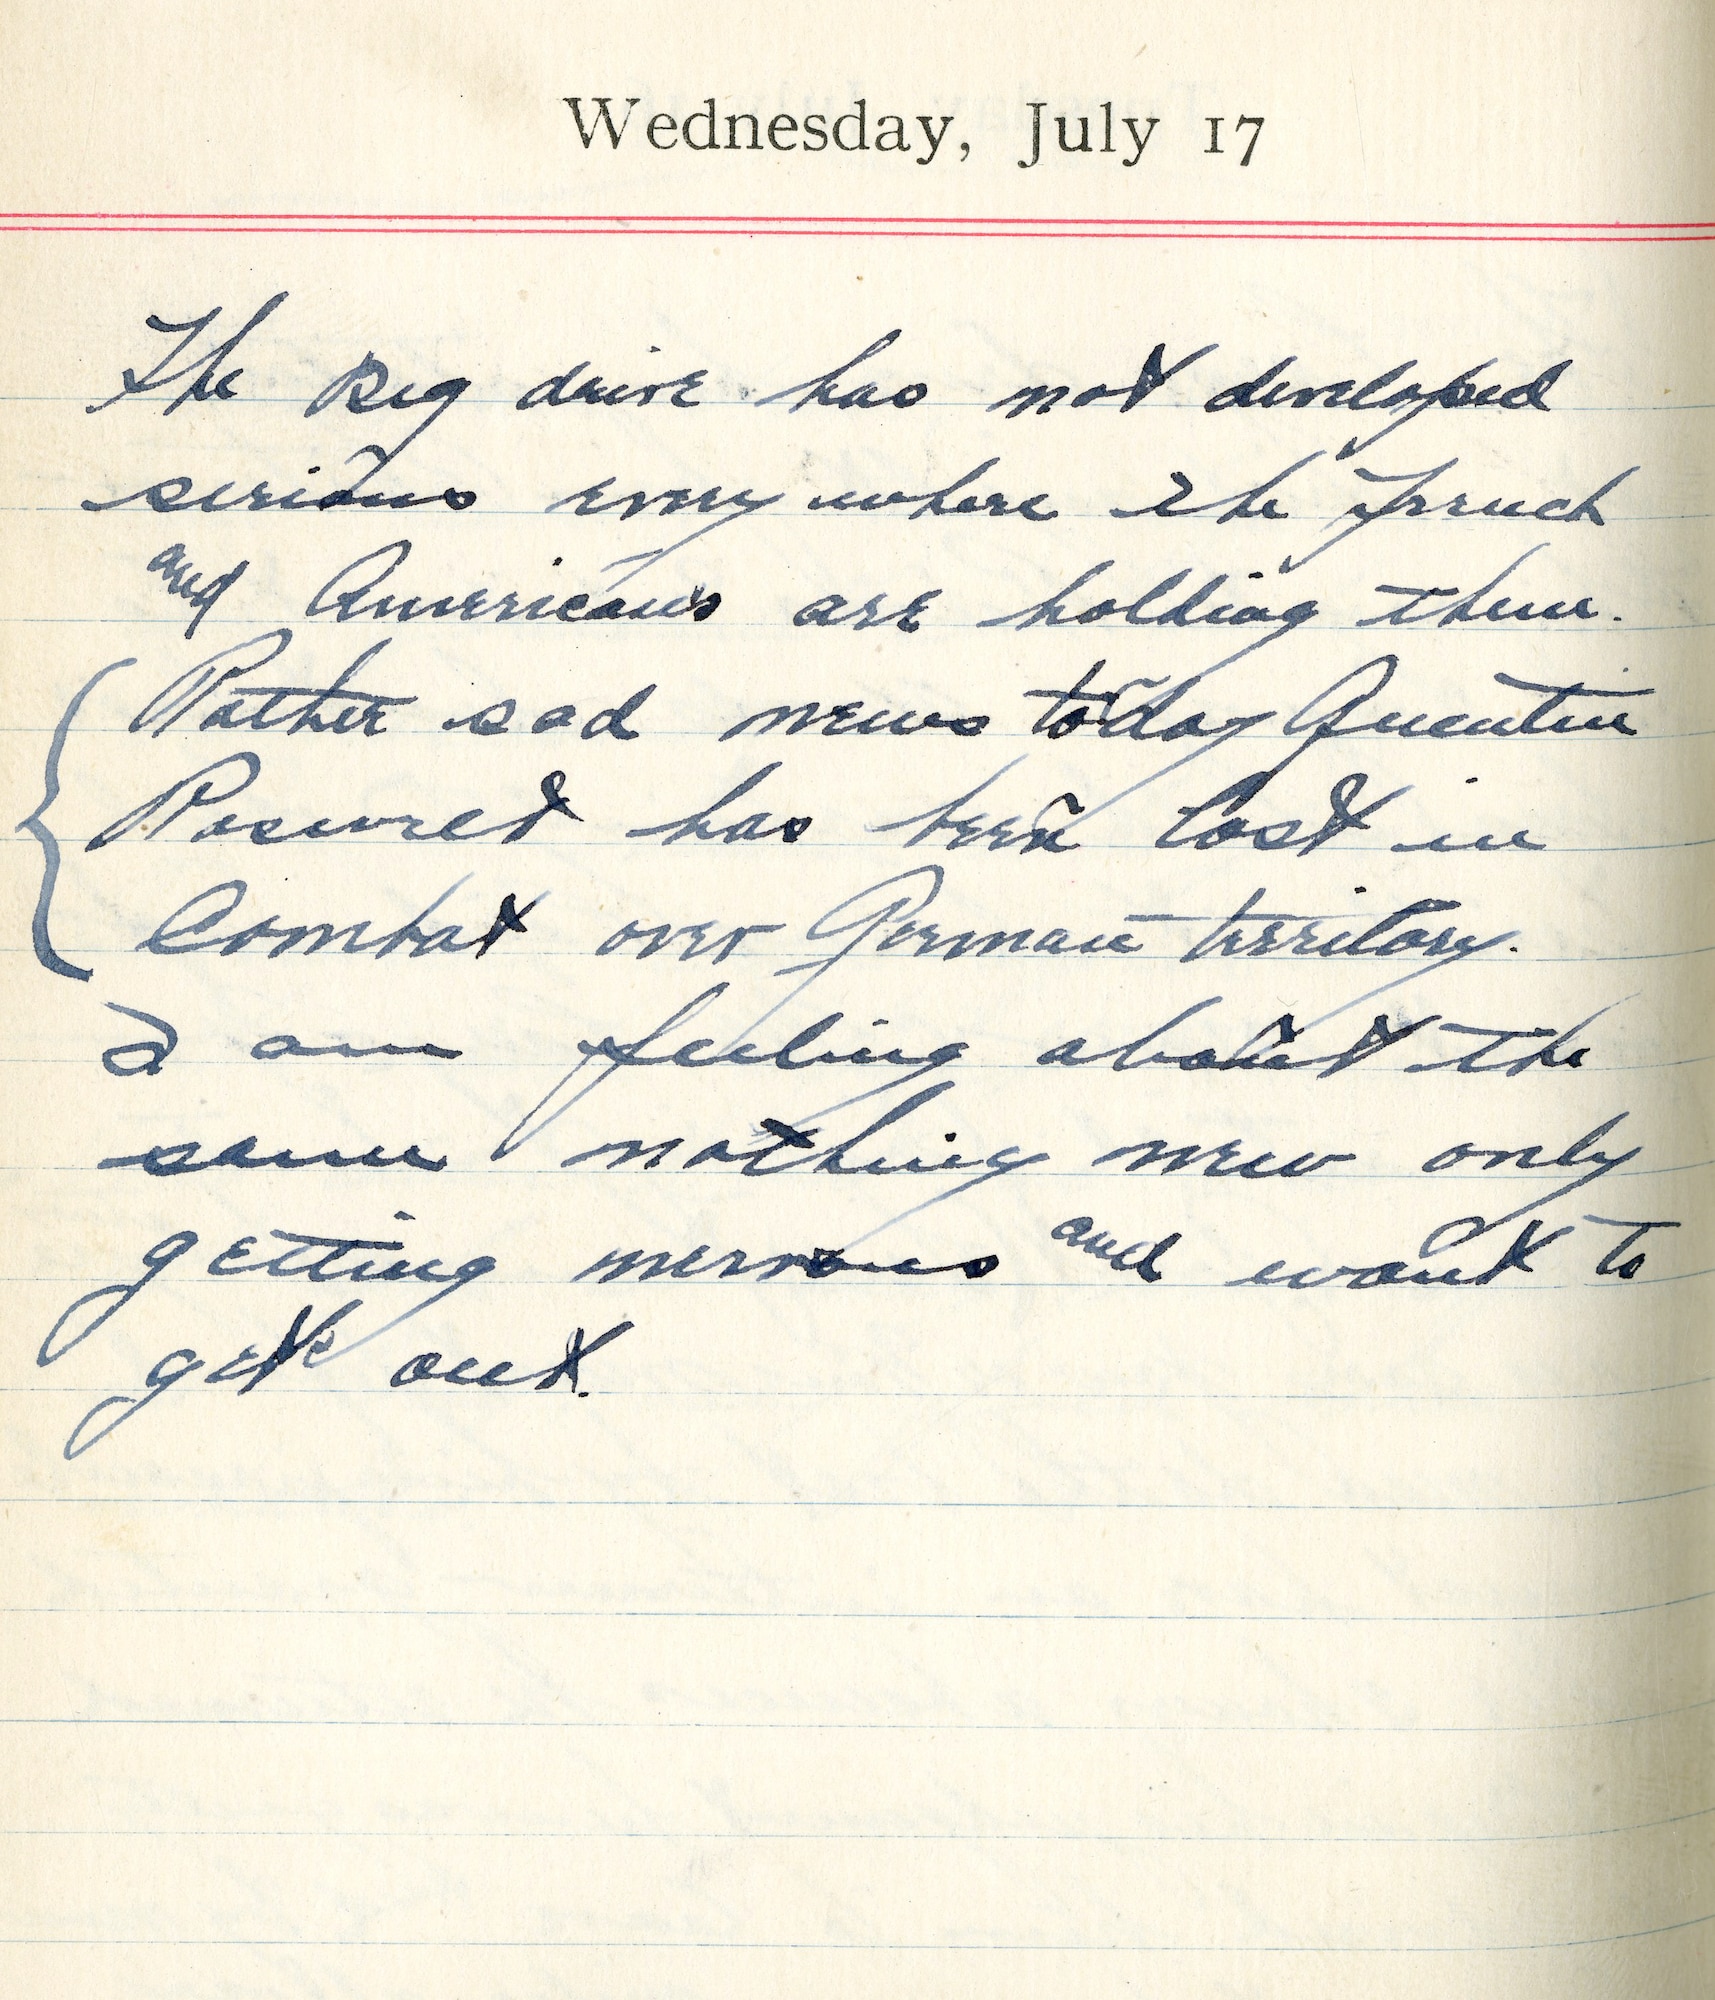 Wednesday, July 17
The Big drive has not developed
serious every where the French
and Americans are holding them.
Rather sad news today Quentin
Rosewelt has been lost in
Combat over German territory.
I am feeling about the
same nothing new only
getting nervous and want to
get out.